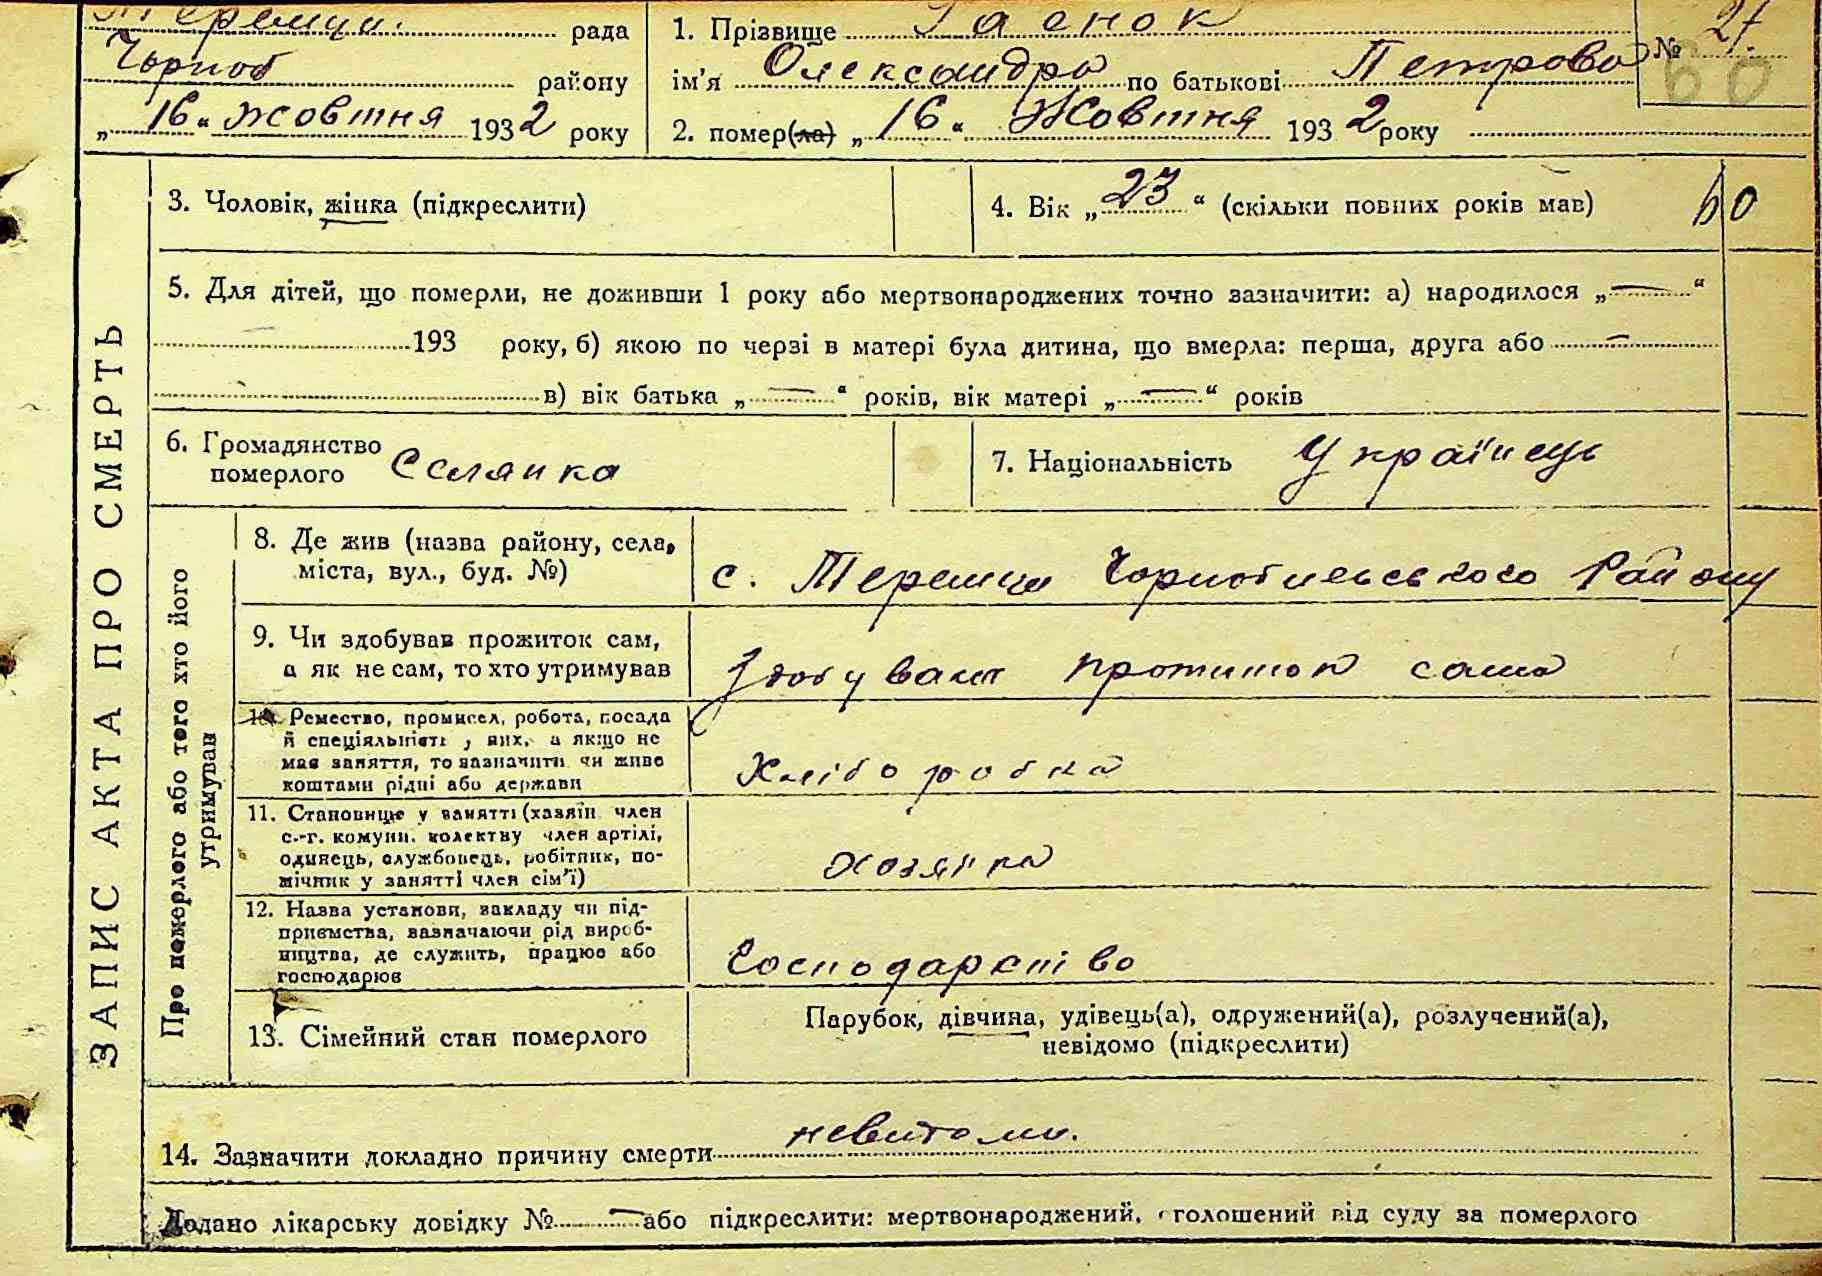 Теремци. рада
Чорноб району
„ 16 “ жовтня 1932 року
1. Прізвище Гаєнок
ім'я Олександра по батькові Петрова
№ 27.
60
2. помер(ла) „ 16 “ Жовтня 1932 року
ЗАПИС АКТА ПРО СМЕРТЬ
3. Чоловік, жінка (підкреслити)
4. Вік „ 23 “ (скільки повних років мав)
60
5. Для дітей, що померли, не доживши 1 року або мертвонароджених точно зазначити: а) народилося „ — “
193 року, б) якою по черзі в матері була дитина, що вмерла: перша, друга або —
в) вік батька „ — “ років, вік матері „ — “ років
6. Громадянство
померлого Селянка
7. Національність Українець
Про померлого або того хто його
утримував
8. Де жив (назва району, села,
міста, вул., буд. №)
с. Теремци Чорнобильського Району
9. Чи здобував прожиток сам,
а як не сам, то хто утримував
Здобувала прожиток сама
10. Ремество, промисел, робота, посада
й спеціяльність у них, а якщо не
мав заняття, то зазначити чи живе
коштами рідні або держави
Хліборобка
11. Становище у занятті (хазяїн член
с.-г. комуни, колективу член артілі,
одинець, службовець, робітник, по-
мічник у занятті член сім'ї)
Хозяйка
12. Назва установи, закладу чи під-
приємства, зазначаючи рід вироб-
ництва, де служить, працює або
господарює
Господарство
13. Сімейний стан померлого
Парубок, дівчина, удівець(а), одружений(а), розлучений(а),
невідомо (підкреслити)
14. Зазначити докладно причину смерти невитоми.
Додано лікарську довідку № — або підкреслити: мертвонароджений, оголошений від суду за померлого